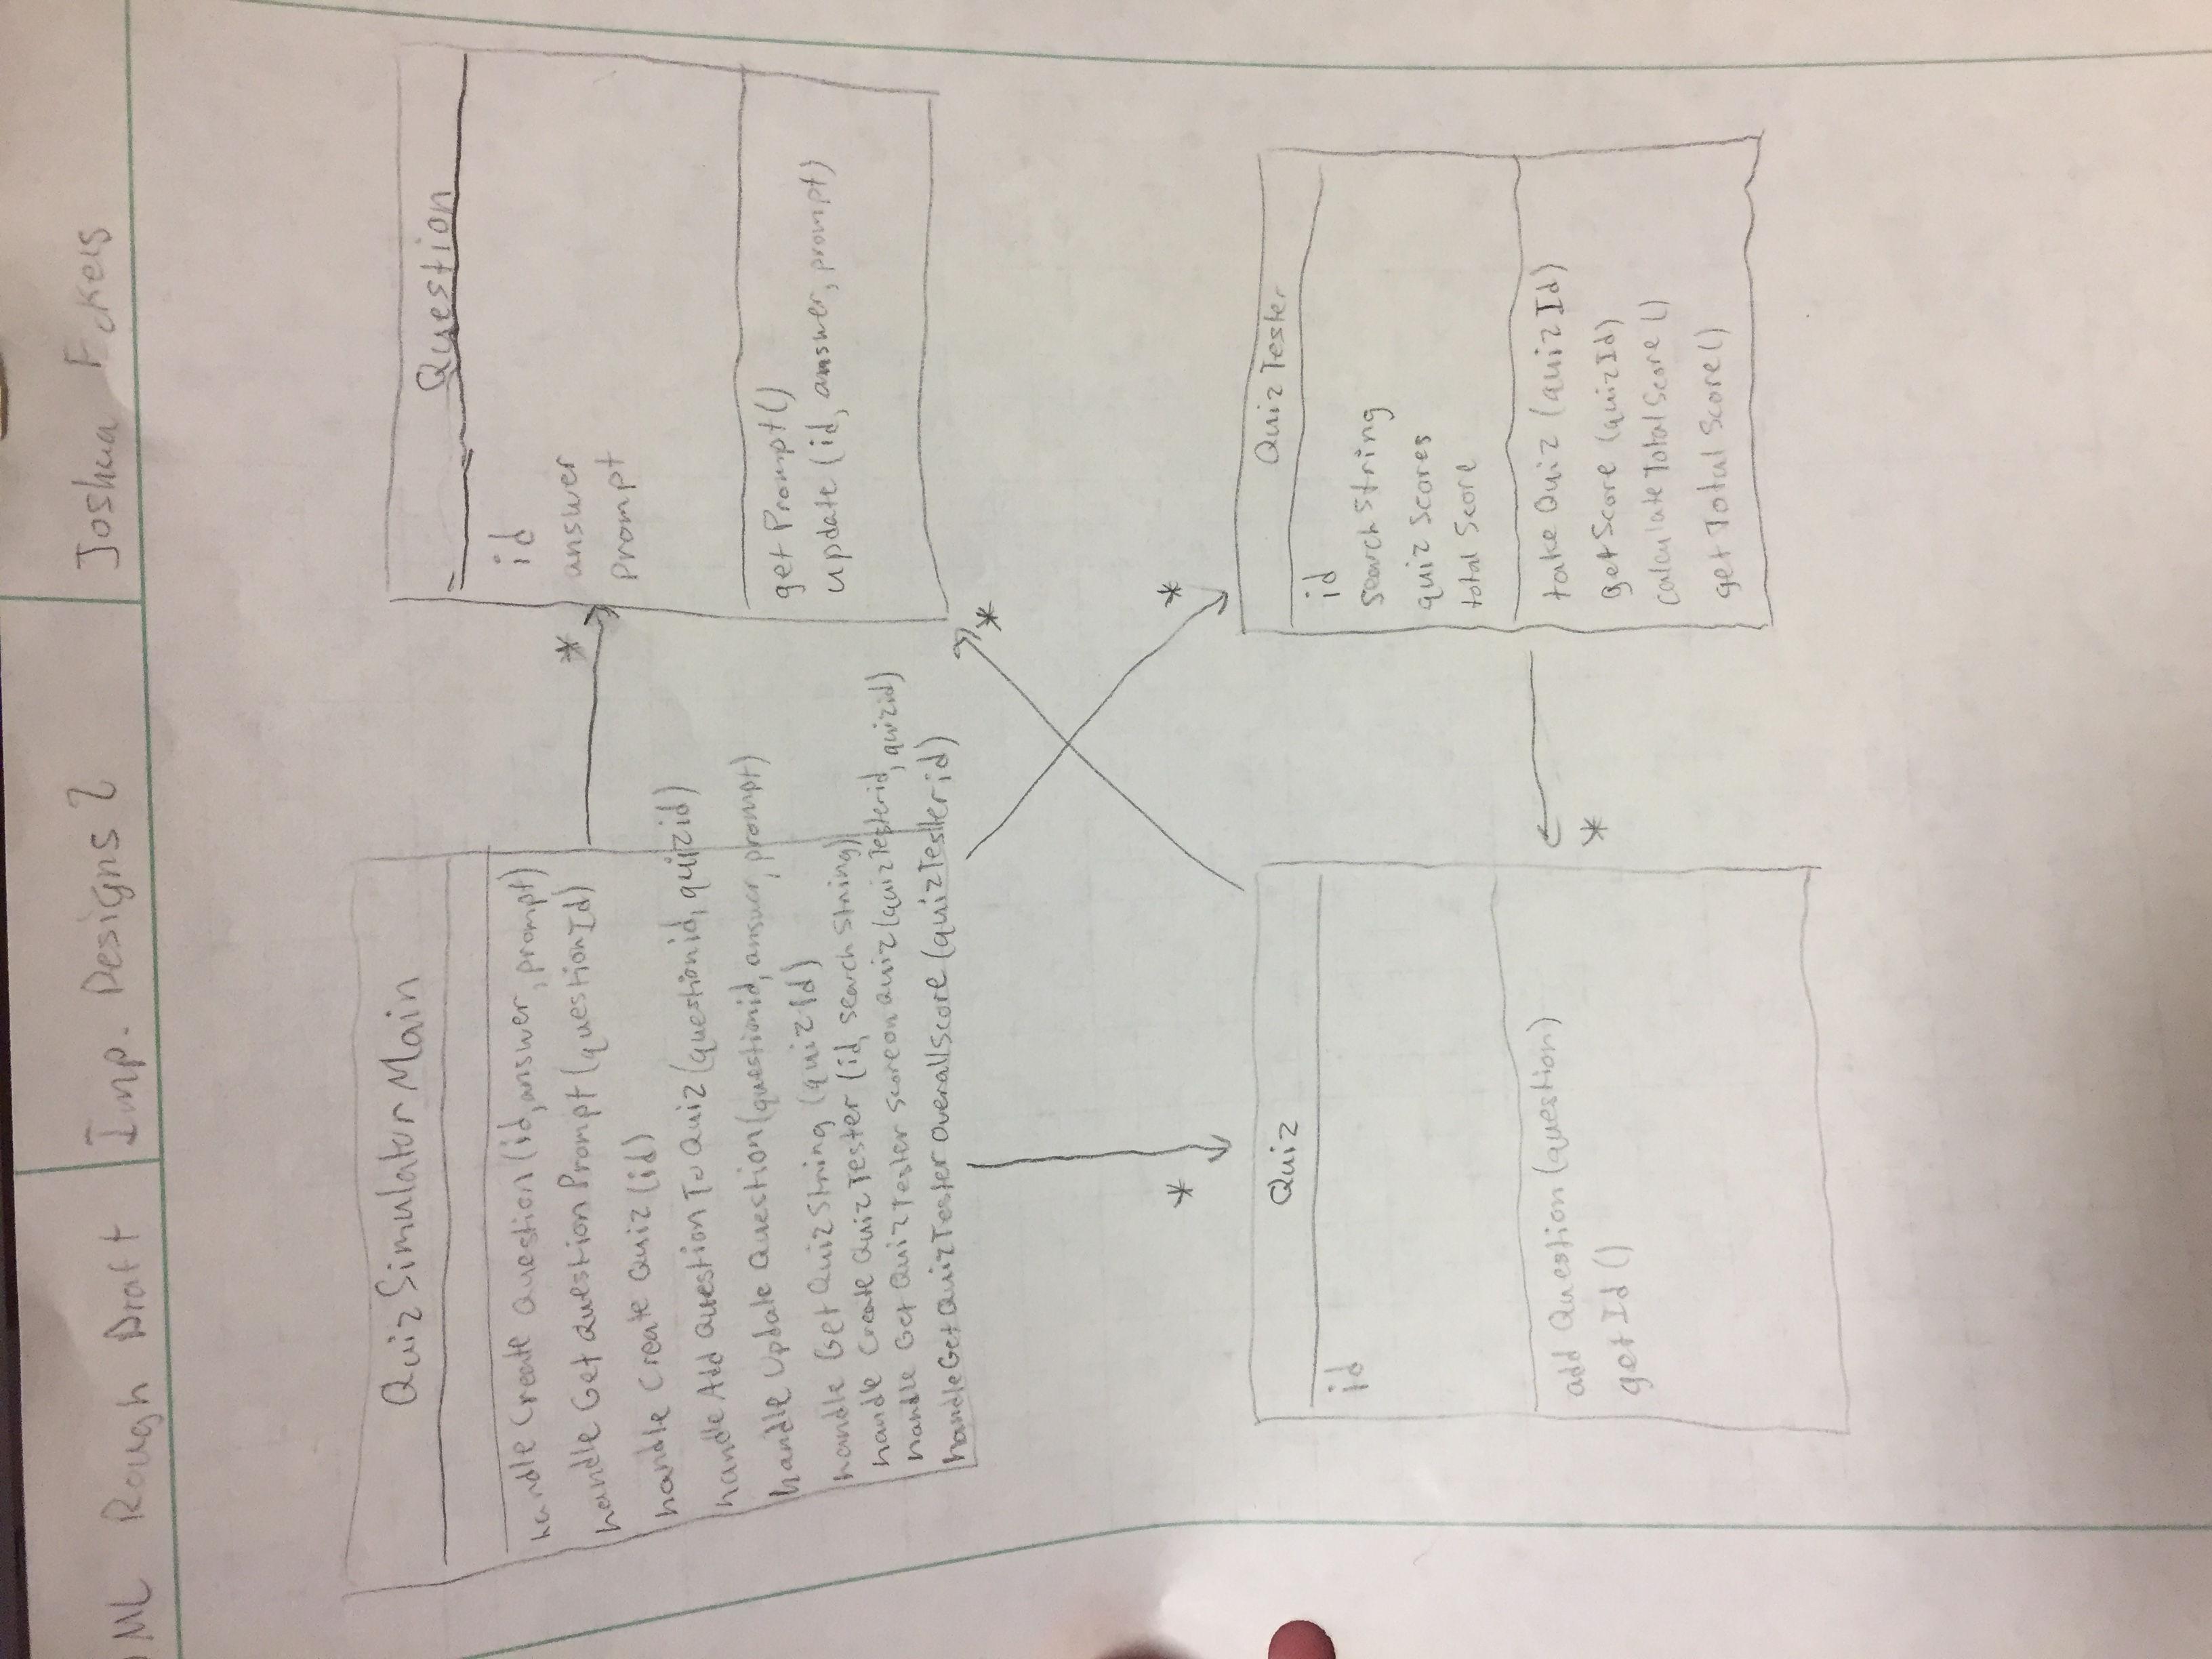 ML Rough Draft
Imp. Designs 2
Joshua Eckels
QuizSimulatorMain
handle Create Question (id, answer, prompt)
handle Get Question Prompt (questionId)
handle Create Quiz (id)
handle Add Question To Quiz (questionid, quizid)
handle Update Question (questionid, answer, prompt)
handle Get QuizString (quizId)
handle Create QuizTester (id, searchString)
handle Get QuizTester Score on Quiz (quizTesterid, quizid)
handleGetQuizTester OverallScore (quizTesterid)
*
Question
id
answer
prompt
getPrompt()
update (id, answer, prompt)
*
*
*
Quiz
id
add Question (question)
getId ()
*
QuizTester
id
searchString
quizScores
totalScore
takeQuiz (quizId)
getScore (quizId)
calculateTotalScore ()
getTotalScore ()